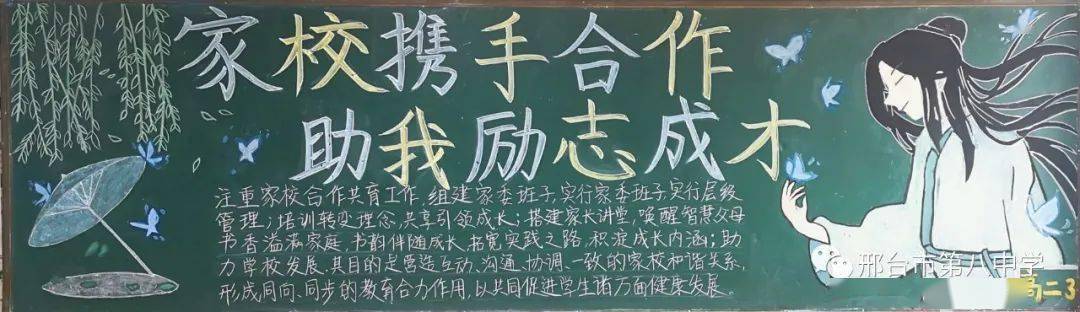 家校携手合作
助我励志成才
注重家校合作共育工作,组建家委班子,实行家委班子,实行层级
管理;培训转变理念,共享引领成长;搭建家长讲堂,唤醒智慧父母
书香溢满家庭,书韵伴随成长,拓宽实践之路,积淀成长内涵;助
力学校发展,其目的是营造互动、沟通、协调、一致的家校和谐关系,
形成同向、同步的教育合力作用,以共同促进学生诸方面健康发展.
邢台市第八中学
高二3